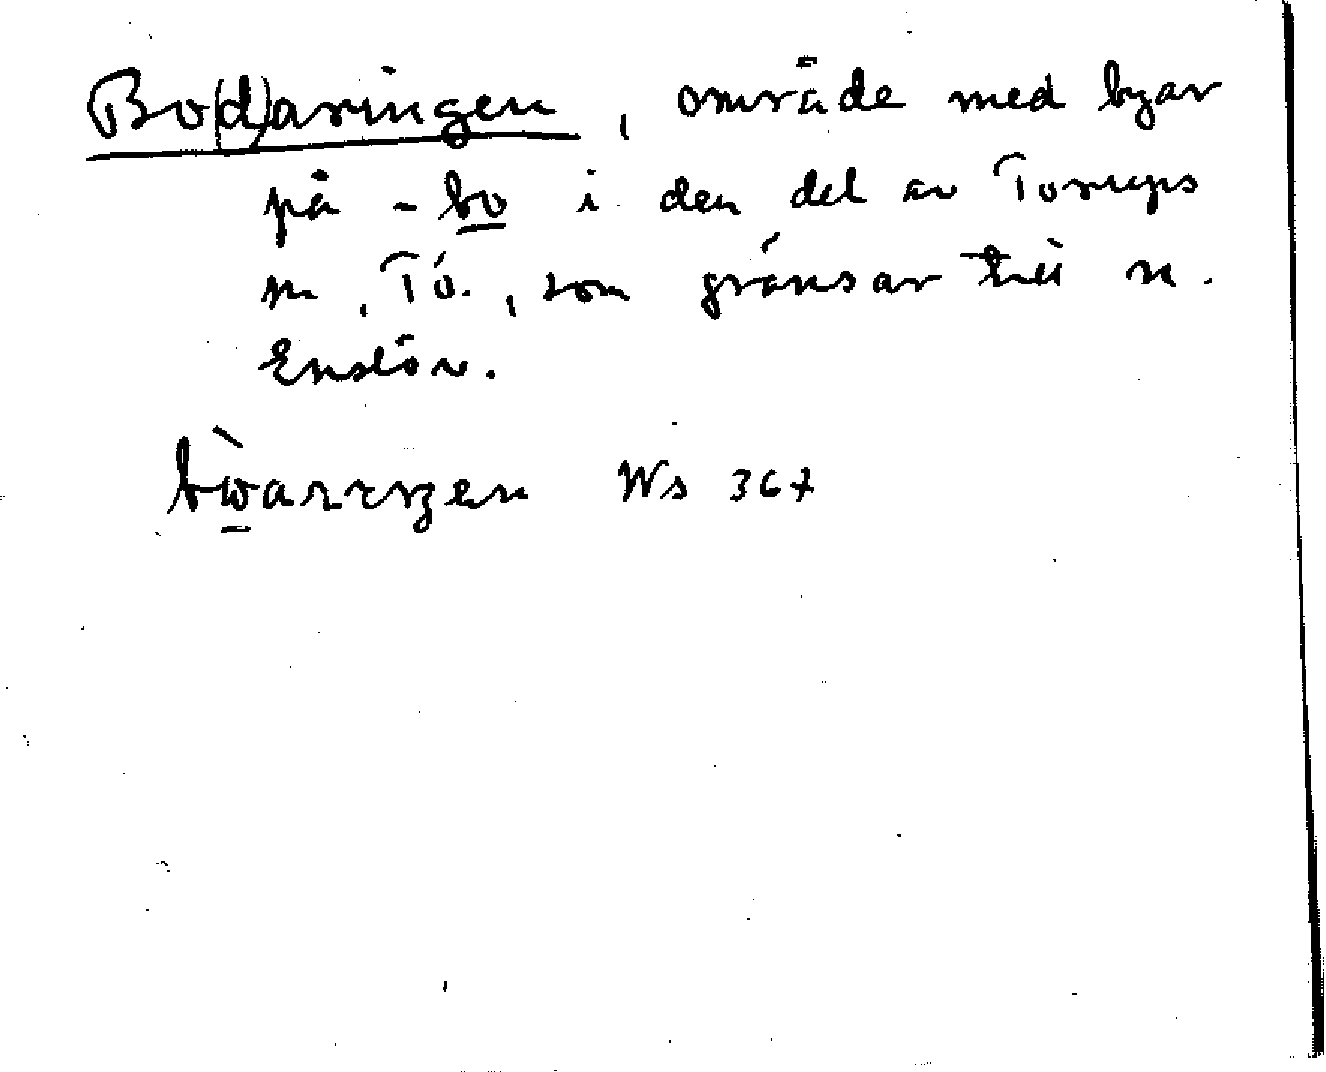 Bo(d)aringen, område med byar
på -bo i den del av Torups
sn, Tö., som gränsar till sn.
Enslöv.
Ws 367